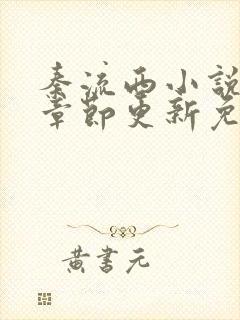 秦流西小說
章節更新免
黃書元